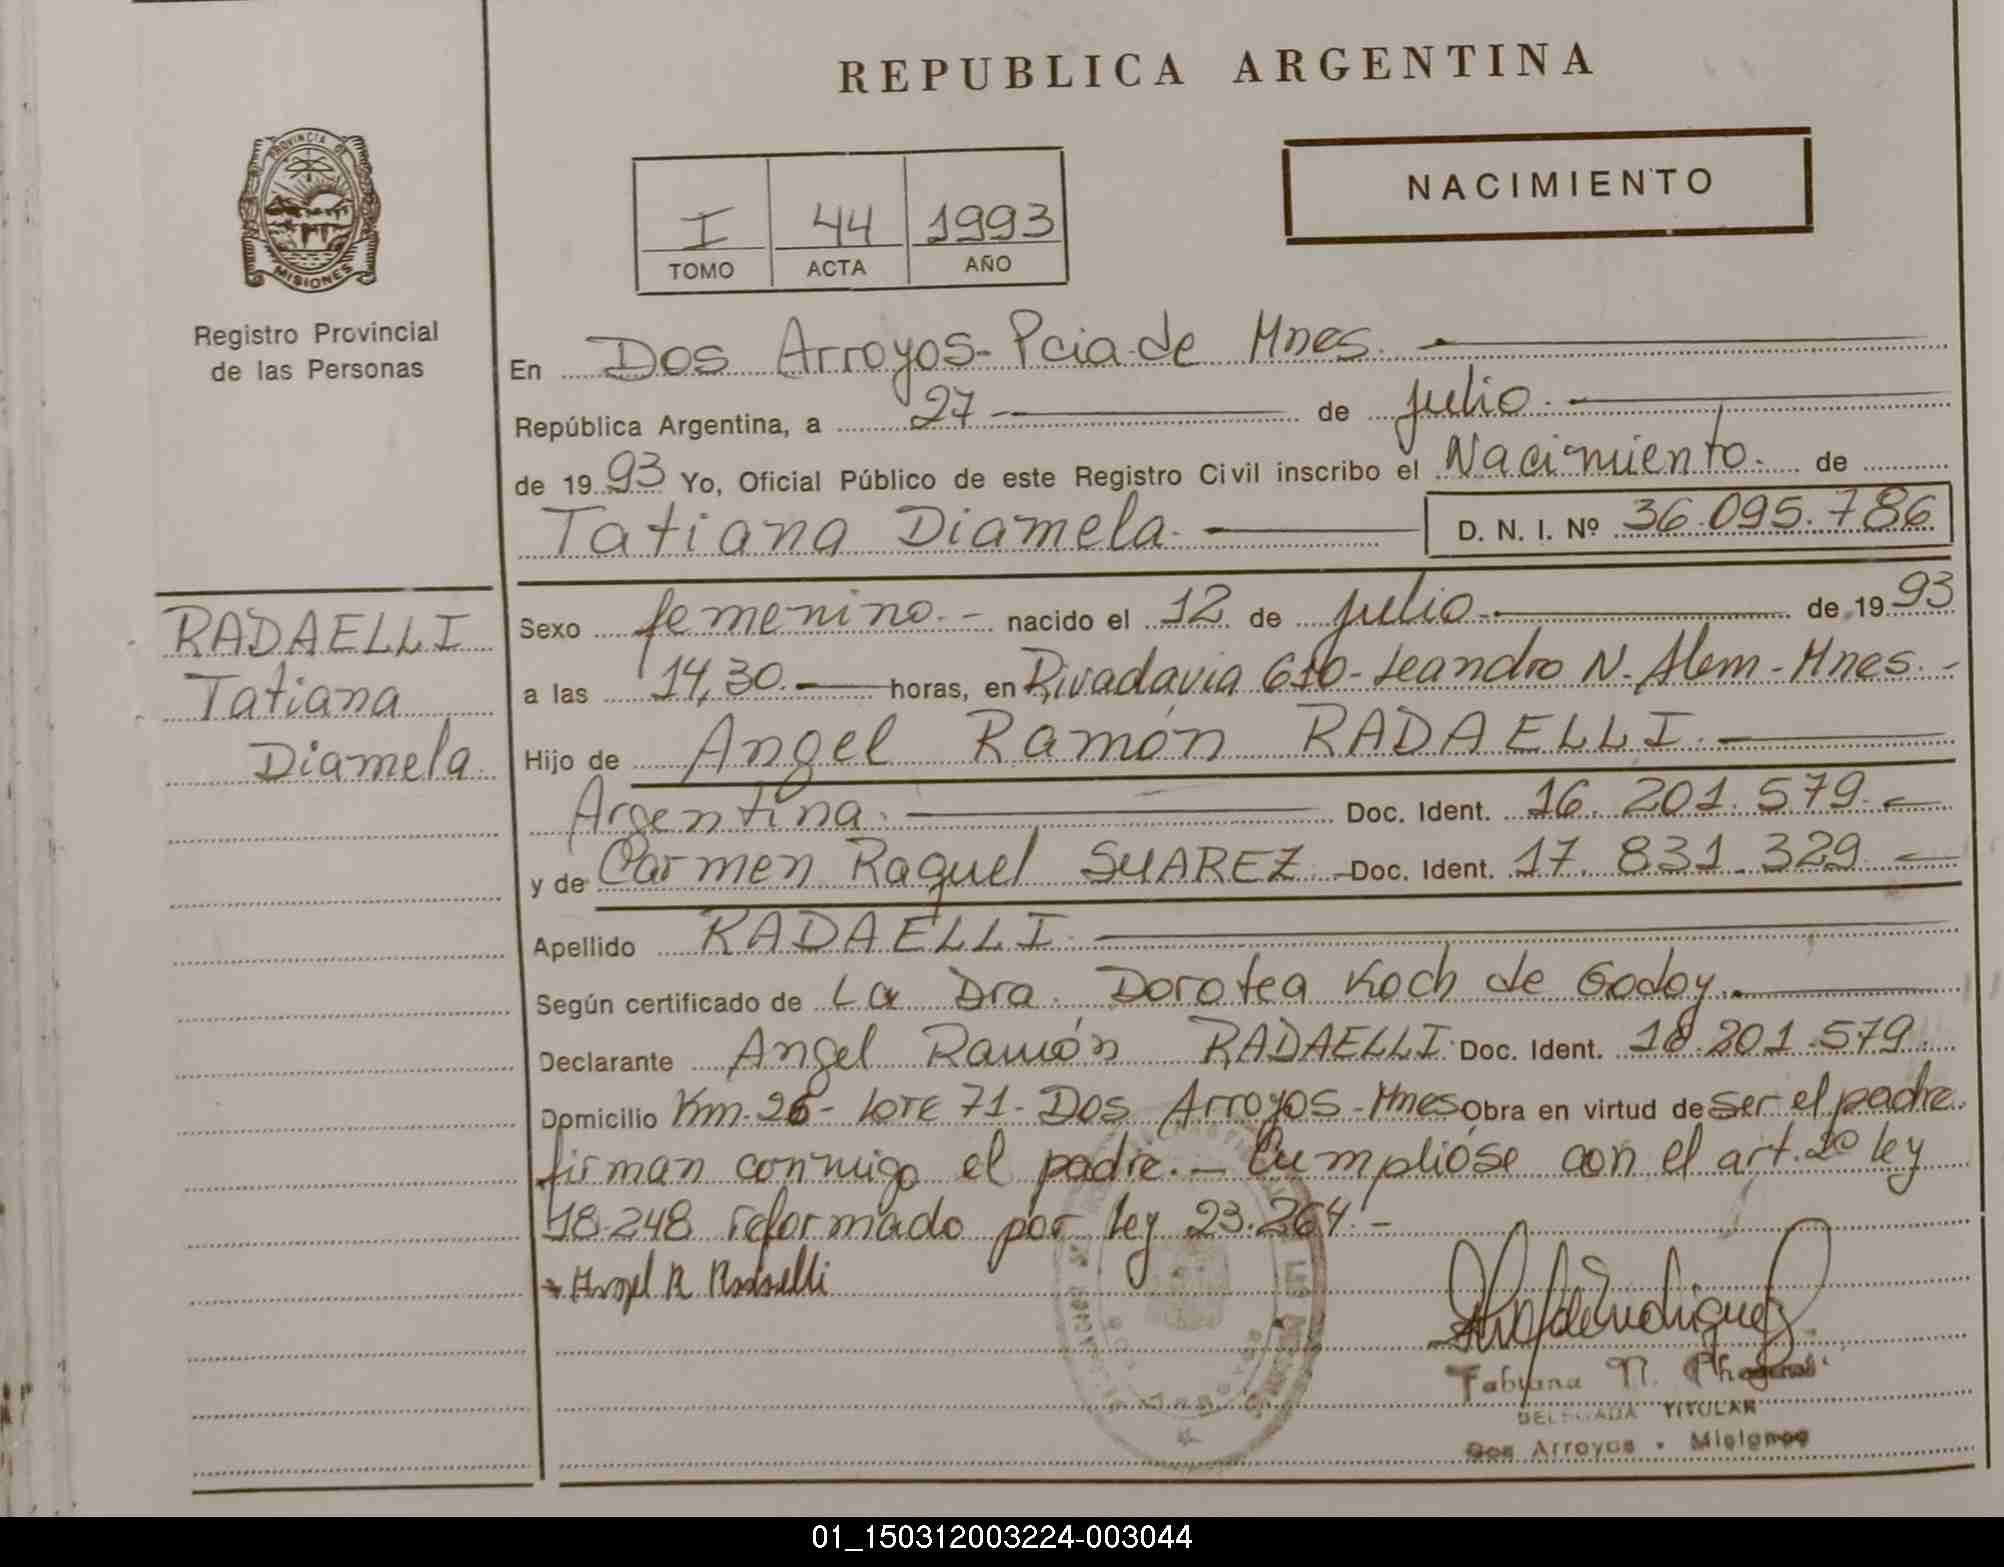 REPUBLICA ARGENTINA
NACIMIENTO
I 44 1993
TOMO ACTA AÑO
PROVINCIA DE
MISIONES
Registro Provincial
de las Personas
En Dos Arroyos- Pcia de Mnes.
República Argentina, a 27 de julio.
de 1993 Yo, Oficial Público de este Registro Civil inscribo el Nacimiento. de
Tatiana Diamela. D. N. I. Nº 36.095.786
RADAELLI
Tatiana
Diamela.
Sexo femenino.- nacido el 12 de julio. de 1993
a las 14,30. horas, en Rivadavia 610- Leandro N. Alem - Mnes. -
Hijo de Angel Ramón RADAELLI.
Argentina. Doc. Ident. 16.201.579.
y de Carmen Raquel SUAREZ Doc. Ident. 17.831.329.
Apellido RADAELLI.
Según certificado de La Dra. Dorotea Koch de Godoy.
Declarante Angel Ramón RADAELLI. Doc. Ident. 18.201.579.
Domicilio Km. 26- Lote 71- Dos Arroyos - Mnes Obra en virtud de ser el padre.
firman conmigo el padre.- Cumplióse con el art. 20 ley
18.248 reformado por ley 23.264.-
Angel R Radaelli
Fabiana N.
DELEGADA TITULAR
Dos Arroyos - Misiones
01_150312003224-003044